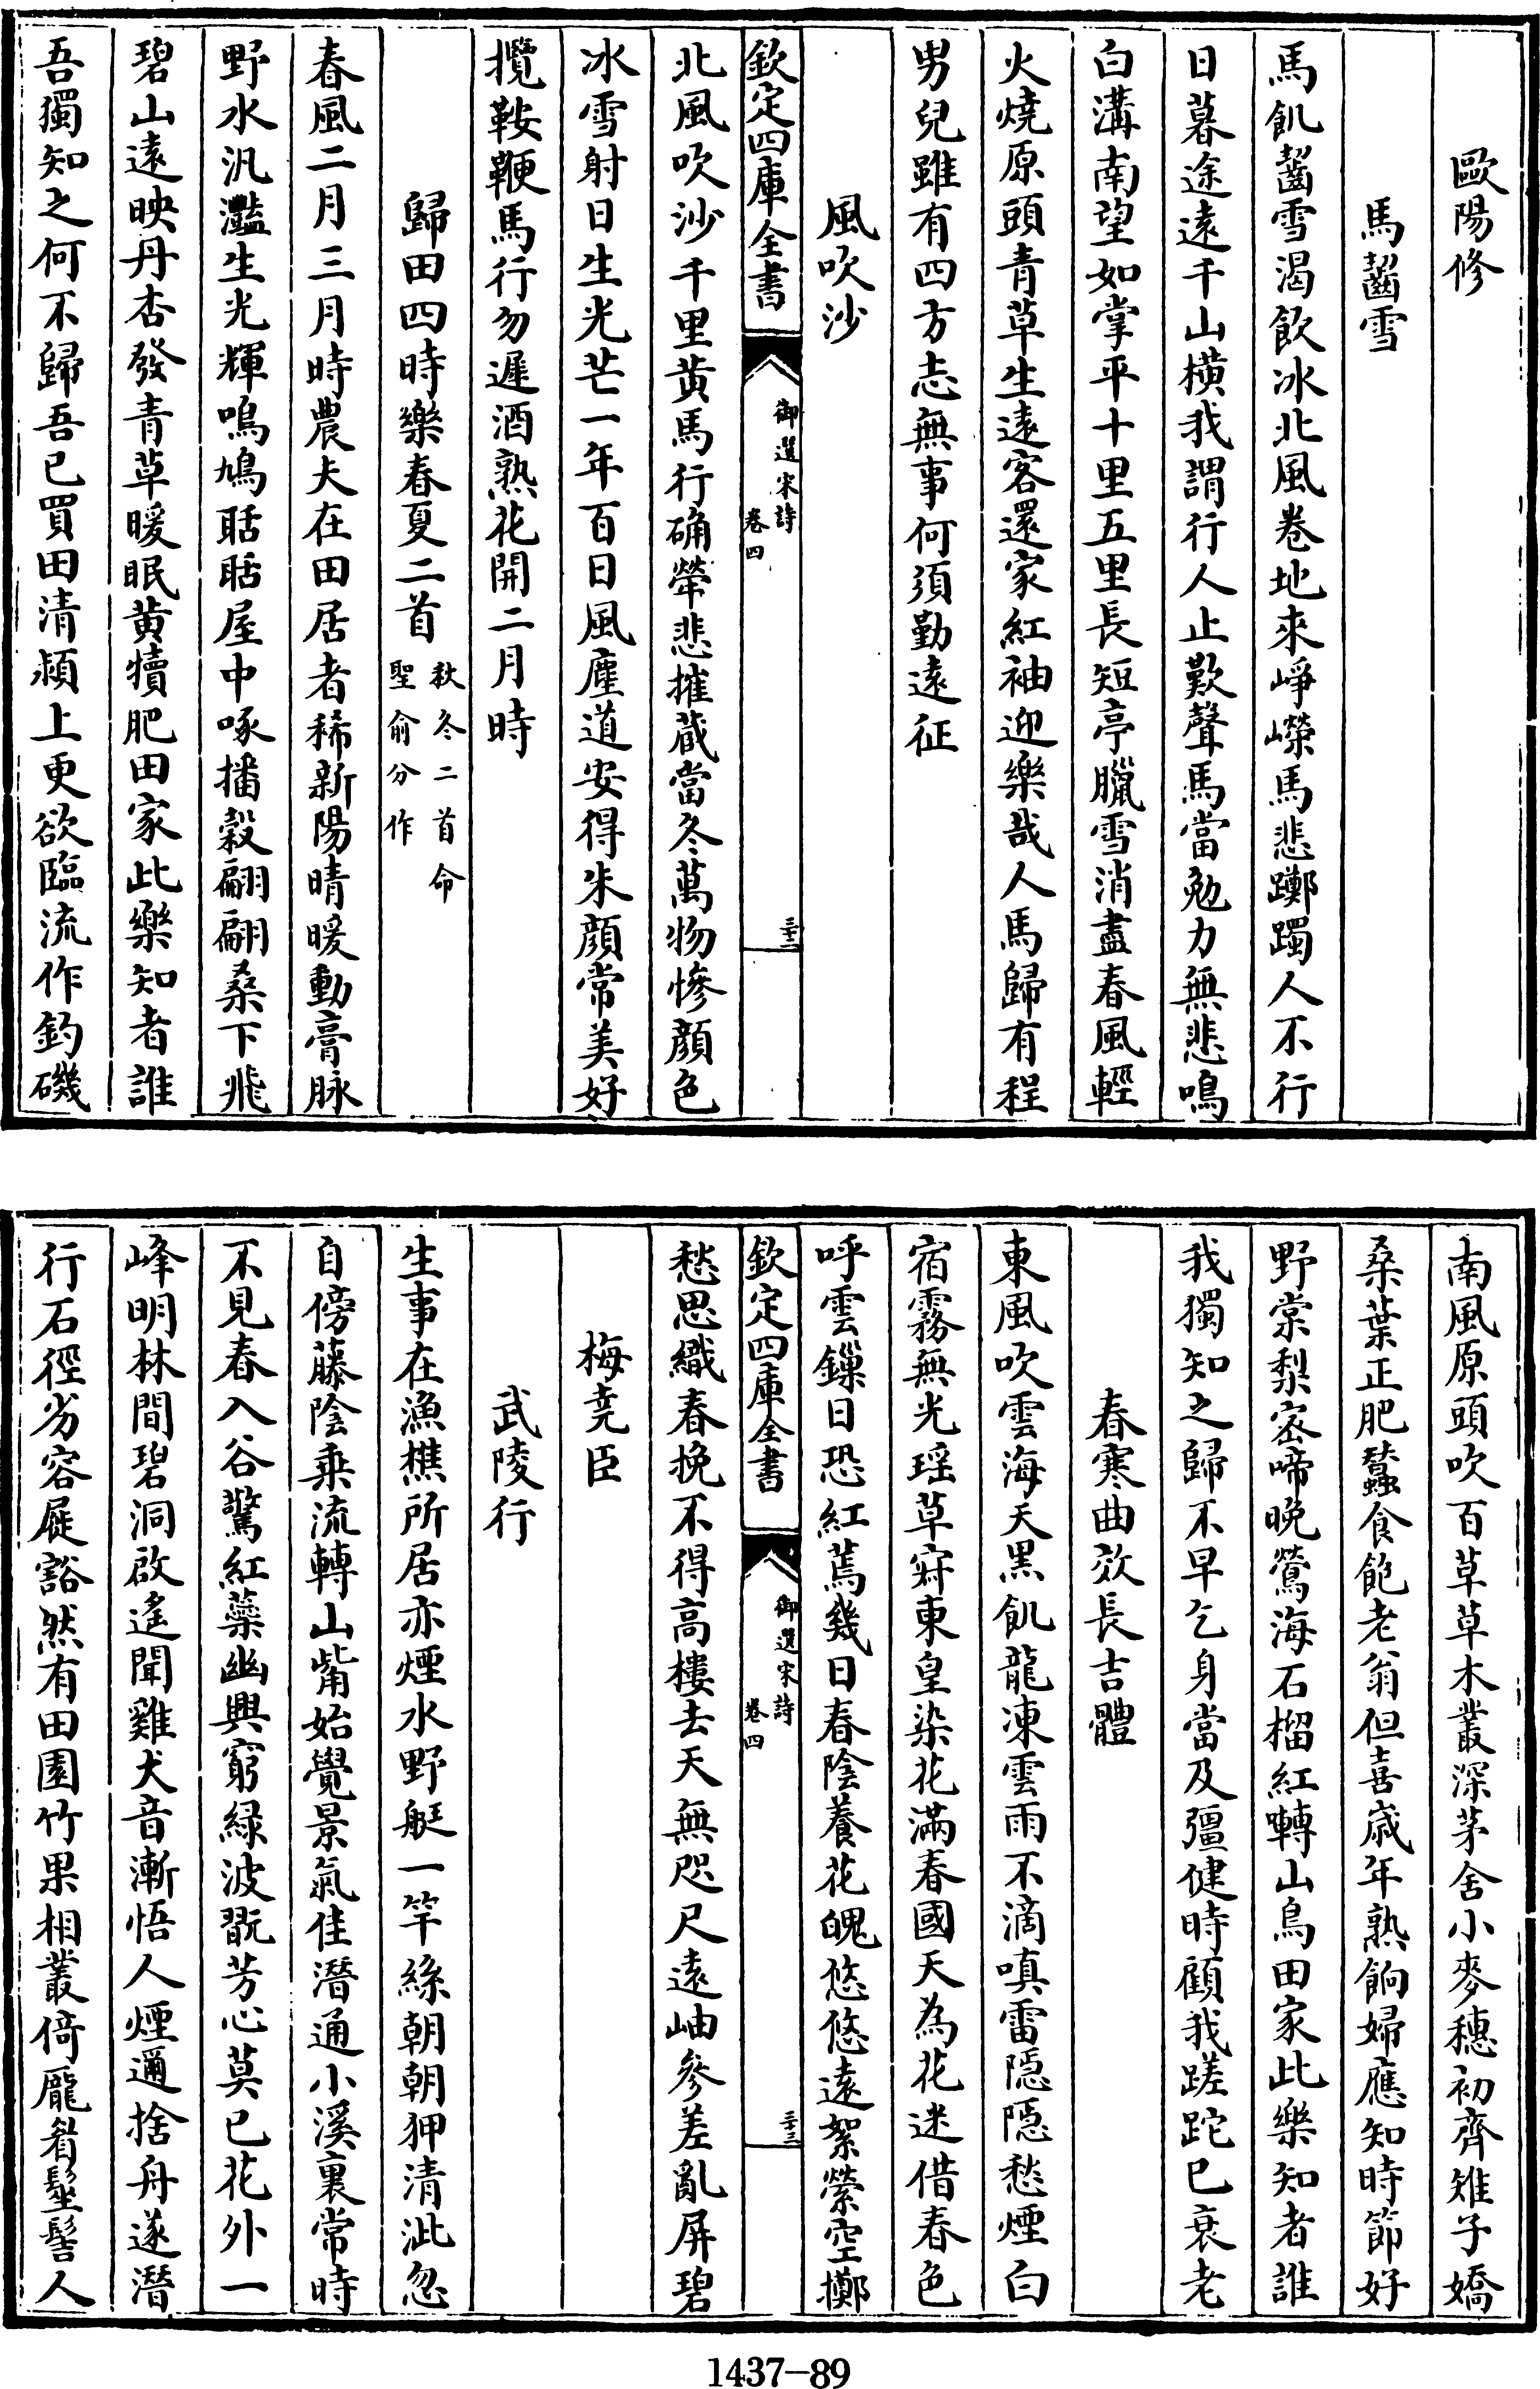 歐陽修
馬齧雪
馬飢齧雪渴飲冰北風卷地來崢嶸馬悲躑躅人不行
日暮途遠千山橫我謂行人止歎聲馬當勉力無悲鳴
白溝南望如掌平十里五里長短亭臘雪消盡春風輕
火燒原頭青草生遠客還家紅袖迎樂哉人馬歸有程
男兒雖有四方志無事何須勤遠征
風吹沙
欽定四庫全書
御選宋詩
卷四
三十二
北風吹沙千里黃馬行确犖悲摧藏當冬萬物慘顏色
冰雪射日生光芒一年百日風塵道安得朱顏常美好
攬鞍鞭馬行勿遲酒熟花開二月時
歸田四時樂春夏二首
秋冬二首命
聖俞分作
春風二月三月時農夫在田居者稀新陽晴暖動膏脉
野水汎灩生光輝鳴鳩聒聒屋中啄播穀翩翩桑下飛
碧山遠映丹杏發青草暖眠黃犢肥田家此樂知者誰
吾獨知之何不歸吾已買田清潁上更欲臨流作釣磯
南風原頭吹百草草木叢深茅舍小麥穗初齊雉子嬌
桑葉正肥蠶食飽老翁但喜歲年熟餉婦應知時節好
野棠梨密啼晚鶯海石榴紅囀山鳥田家此樂知者誰
我獨知之歸不早乞身當及彊健時顧我蹉跎已衰老
春寒曲效長吉體
東風吹雲海天黑飢龍凍雲雨不滴嗔雷隱隱愁煙白
宿霧無光瑶草寂東皇染花滿春國天為花迷借春色
呼雲鏁日恐紅蔫幾日春陰養花魄悠悠遠絮縈空擲
欽定四庫全書
御選宋詩
卷四
三十三
愁思織春挽不得高樓去天無咫尺遠岫參差亂屏碧
梅堯臣
武陵行
生事在漁樵所居亦煙水野艇一竿絲朝朝狎清泚忽
自傍藤陰乘流轉山觜始覺景氣佳潛通小溪裏常時
不見春入谷驚紅蘂幽興窮綠波翫芳心莫已花外一
峰明林間碧洞啟遙聞雞犬音漸悟人煙邇捨舟遂潛
行石徑劣容屣豁然有田園竹果相叢倚龐眉髽髻人
1437-89